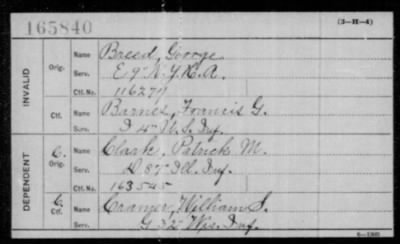 165840
(3—H—4)
INVALID
Orig.
Name Breed, George
Serv. E 9" N.Y.H.A.
Ctf. No. 116277
Ctf.
Name Barnes, Francis G.
Serv. U.S. Inf.
DEPENDENT
C. Orig.
Name Clark, Patrick M.
Serv. D 87" Ill. Inf.
Ctf. No. 163545
C. Ctf.
Name Cramer, William S.
Serv. G 32" Wis. Inf.